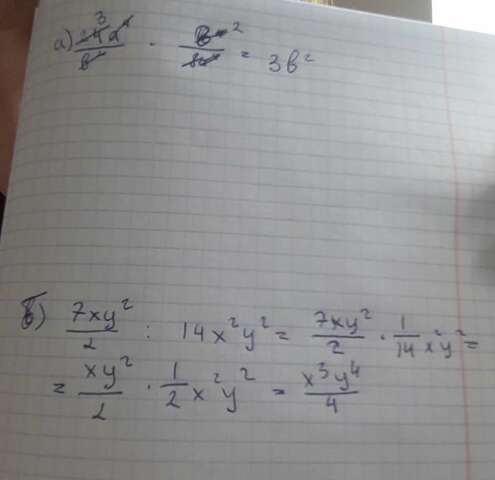 а) 3 24a² / b² · b⁴ 2 / 8a² = 3b²
б) 7xy² / 2 : 14x²y² = 7xy² / 2 · 1/14 x²y² =
= xy² / 2 · 1/2 x²y² = x³y⁴ / 4